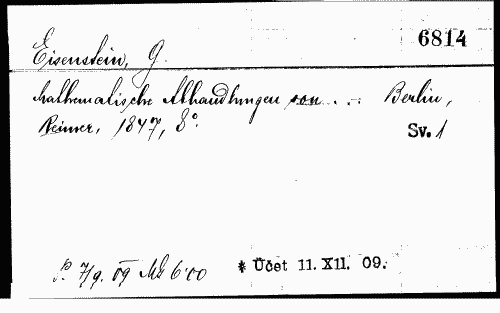 6814
Eisenstein, G.
Mathematische Abhandlungen von . . . Berlin,
Reimer, 1847, 8°.
Sv. 1
P. 7/9. 09 Mk 6·00 * Účet 11. XII. 09.